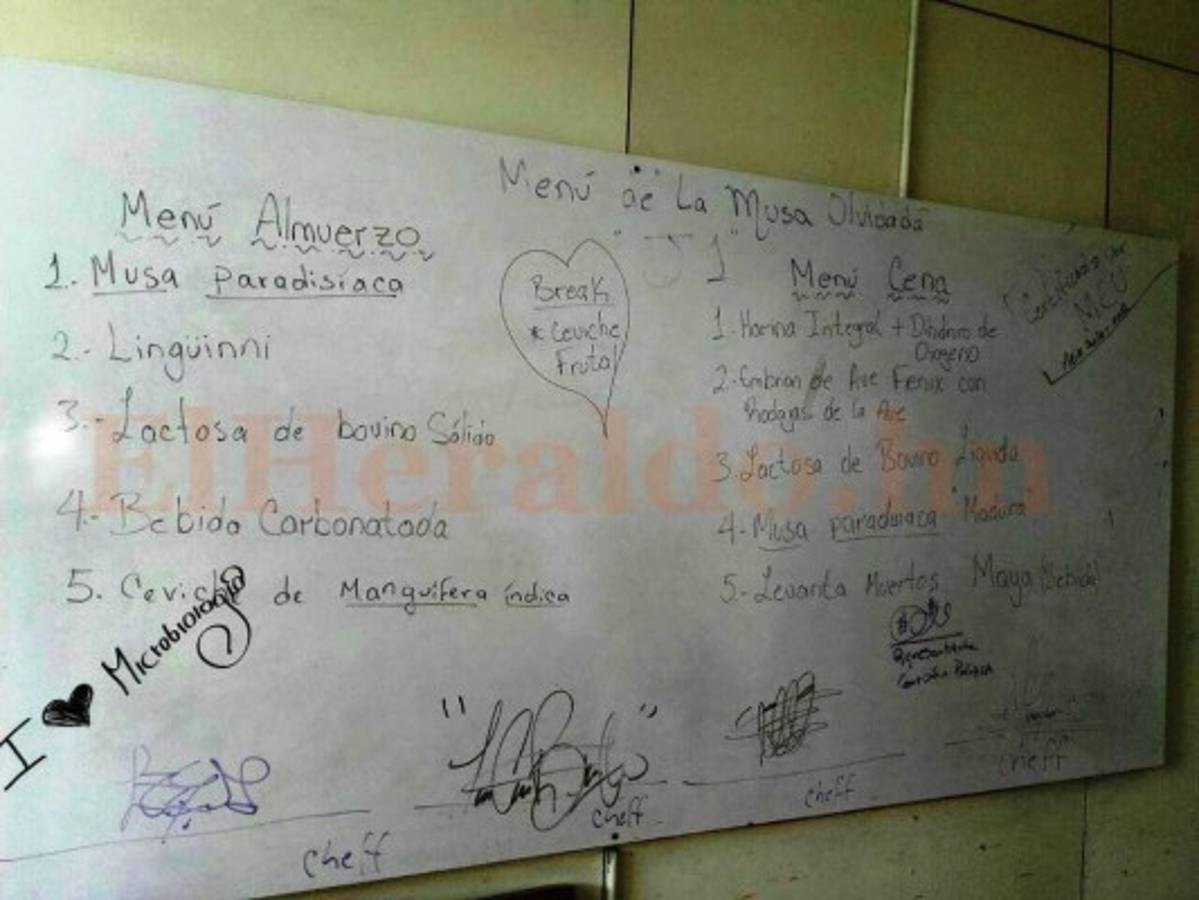 Menú de La Musa Olvidada
"J1"
Menú Almuerzo
1. Musa paradisíaca
2.- Lingüinni
3.- Lactosa de bovino Sólido
4.- Bebida Carbonatada
5. Ceviche de Manguifera índica
Break
* Ceviche
Frutal
Menú Cena
1. Harina Integral +
Oxogeno
2. Embrion de Ave Fenix con
Rodajas de la Ave
3. Lactosa de Bovino Liquida
4- Musa paradisiaca "Madura"
5.- Levanta Muertos Maya (Bebida)
Certificado
MEU
I ♥ Microbiología
Representante
cheff
cheff
cheff
cheff
ElHeraldo.hn